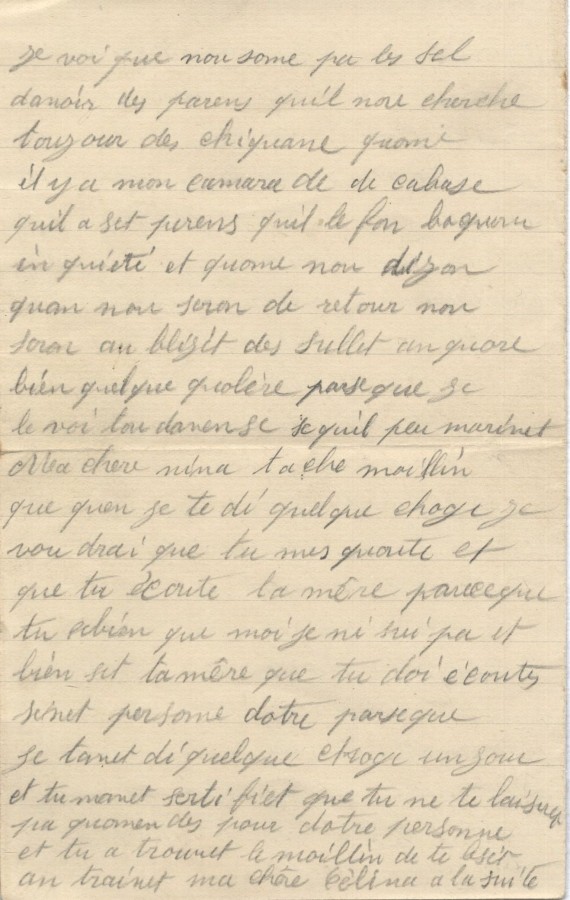 je voi que nou some pa les sel
davoir des parens quil nou cherche
toujour des chiquane quome
il y a mon camarade de cabase
quil a set perens quil le fon boquou
in quiété et quome nou dizon
quan nou seron de retour nou
seron au blizét des sullet anquore
bien quelque quolère parseque je
le voi tou davense se quil peu marivet
Ma chere nina tache moillin
que quen je te di quelque choge je
voudrai que tu mes quoute et
que tu écoute ta mêre parceque
tu sebien que moi je ni sui pa et
bien set ta mêre que tu doi écoutes
senet persome dotre parseque
je tanet di quelque choge un jour
et tu manet sertifiet que tu ne te laiserep
pa quomendes pour dotre personne
et tu a trouvet le moillin de te lesér
an trainet ma chêre Célina a la suite